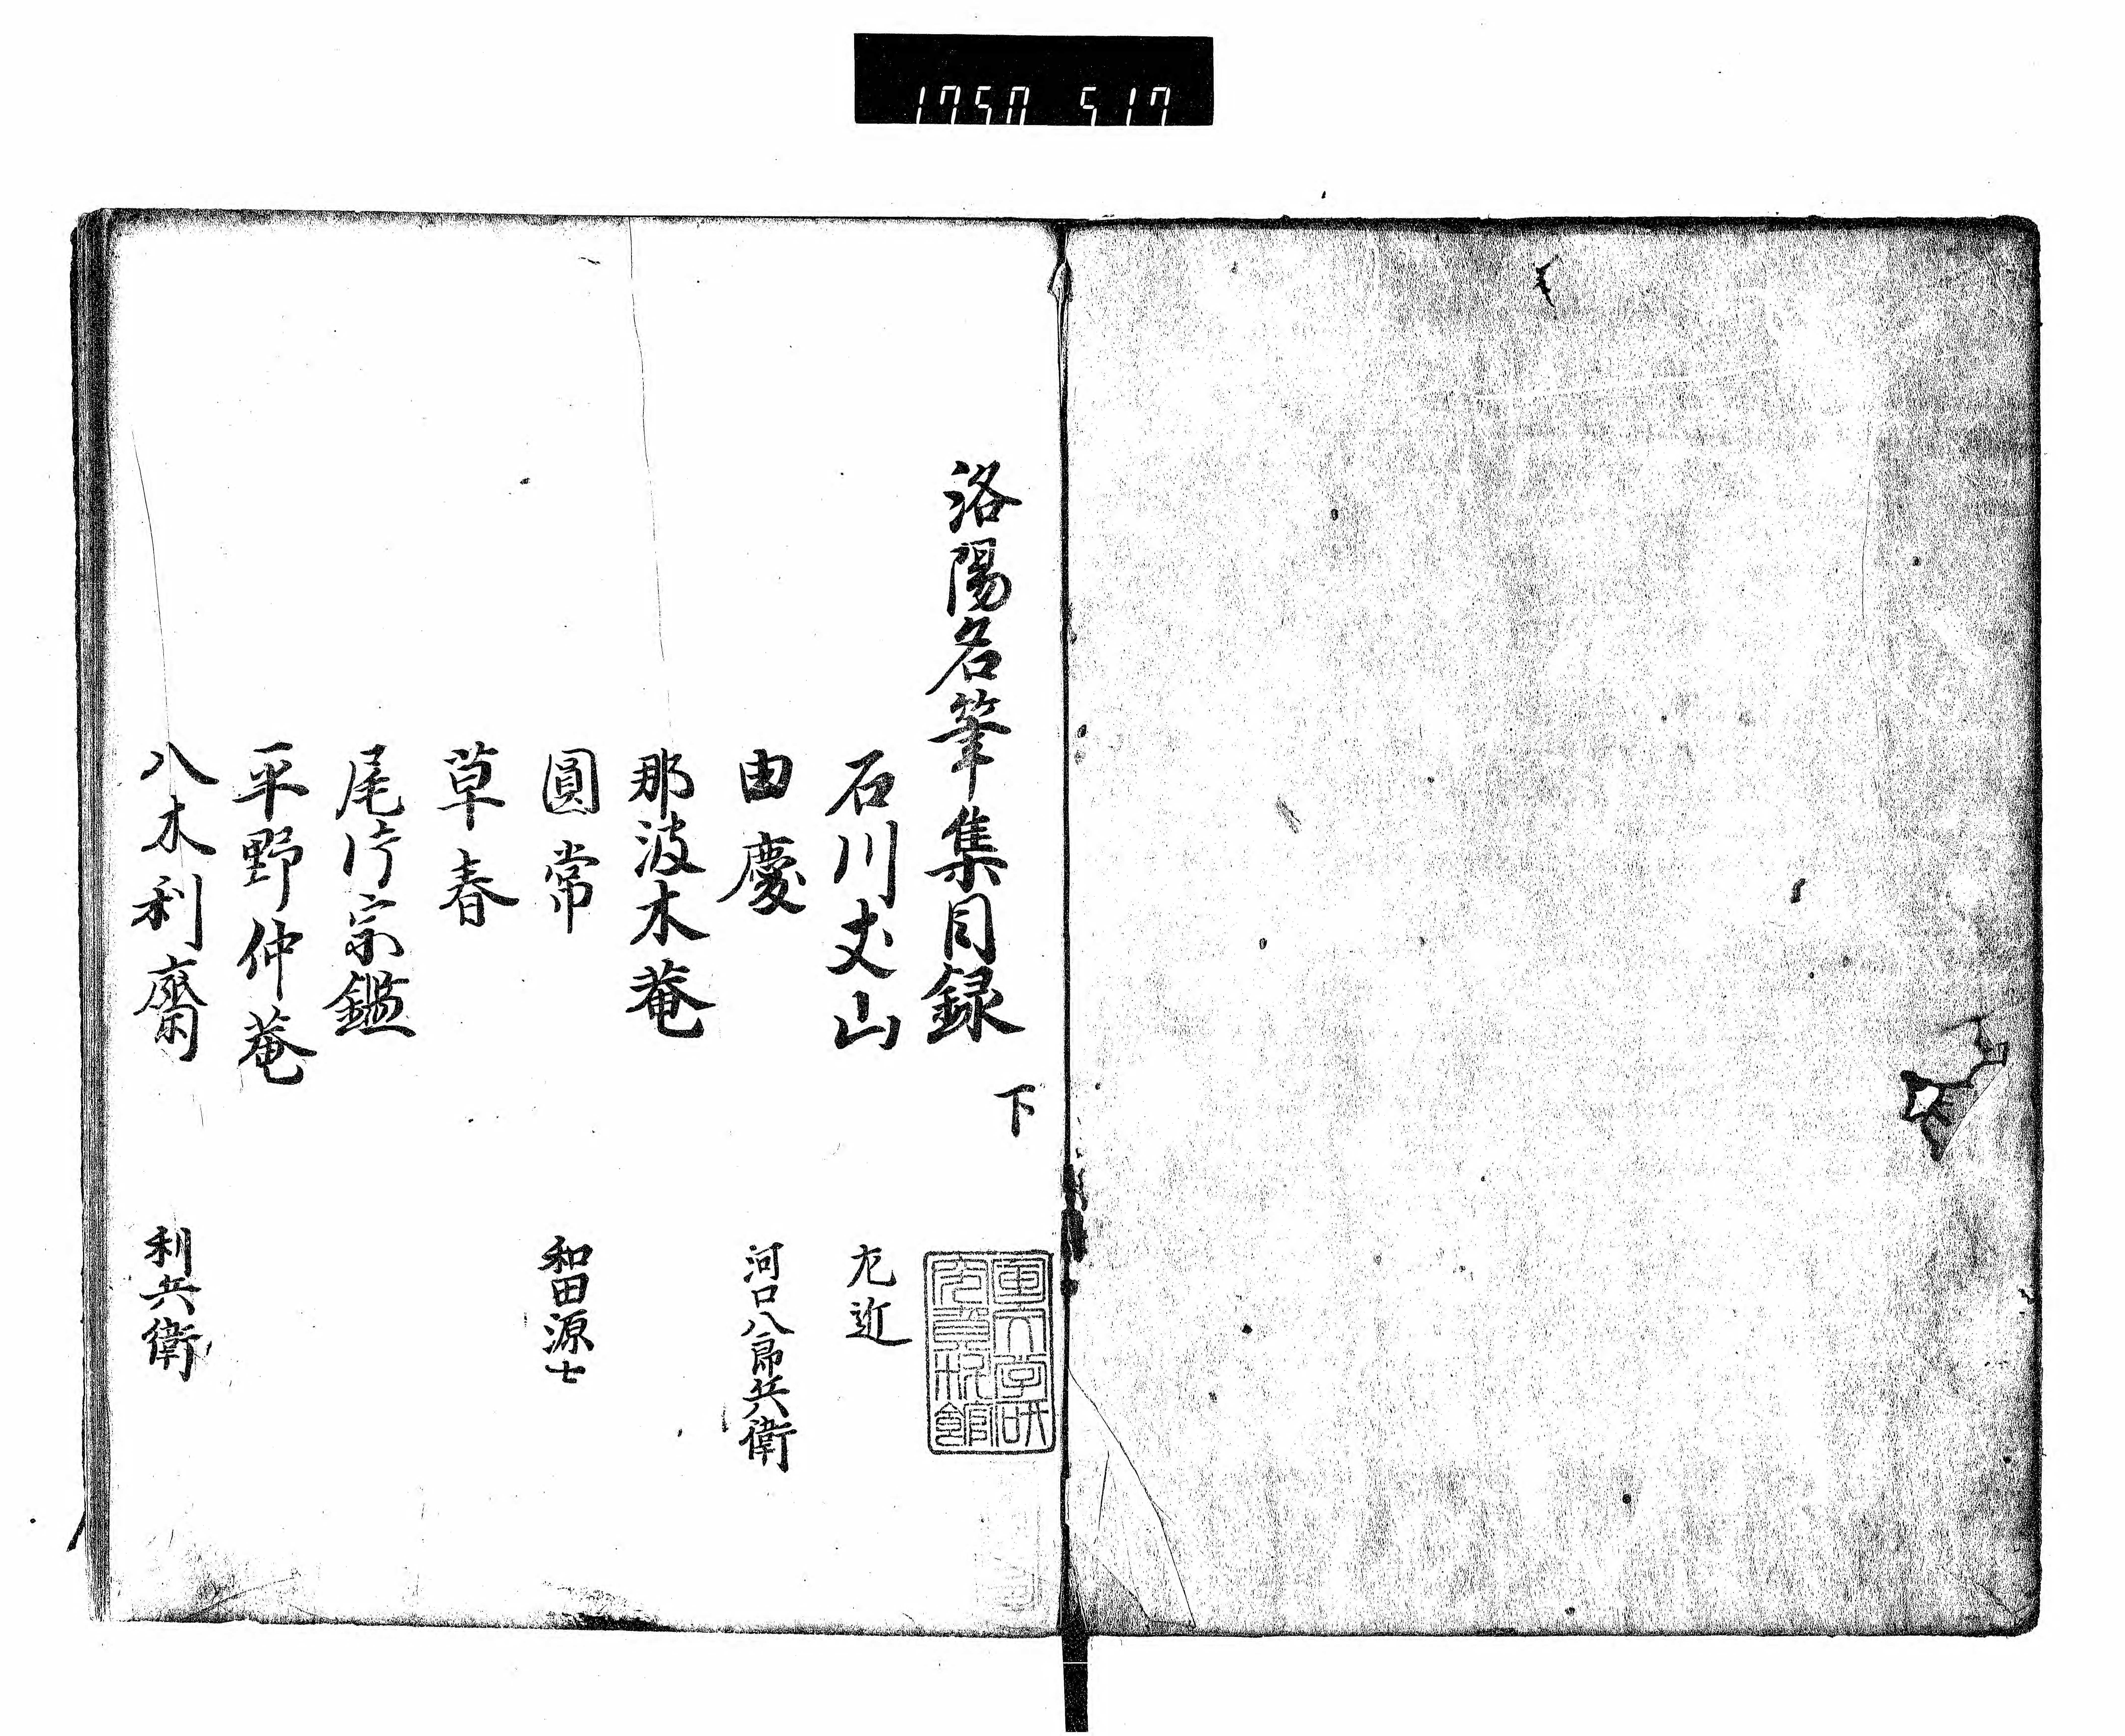 1750 517
洛陽名筆集目録
下
石川丈山 左近
由慶 河口八郎兵衛
那波木菴
圓常 和田源七
草春
尾片宗鑑
平野仲菴
八木利齋 利兵衛